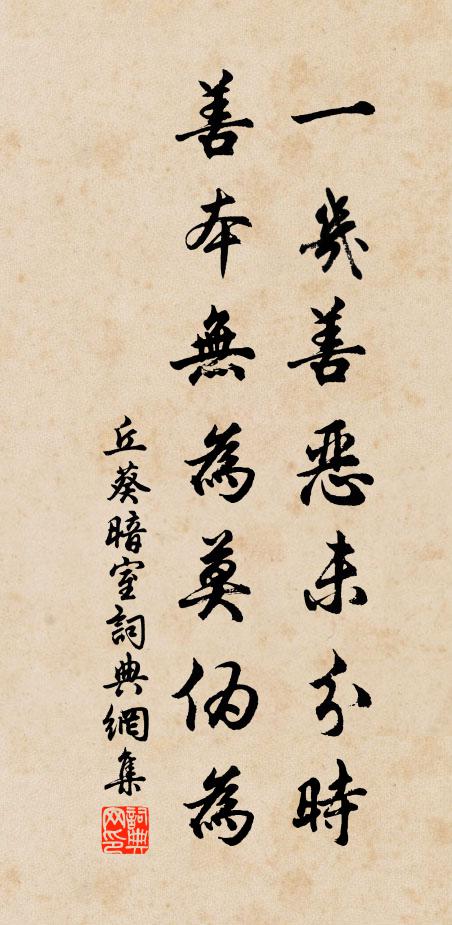 一幾善惡未分時
善本無為莫偽為
丘葵暗室詞典網集
詞典網印